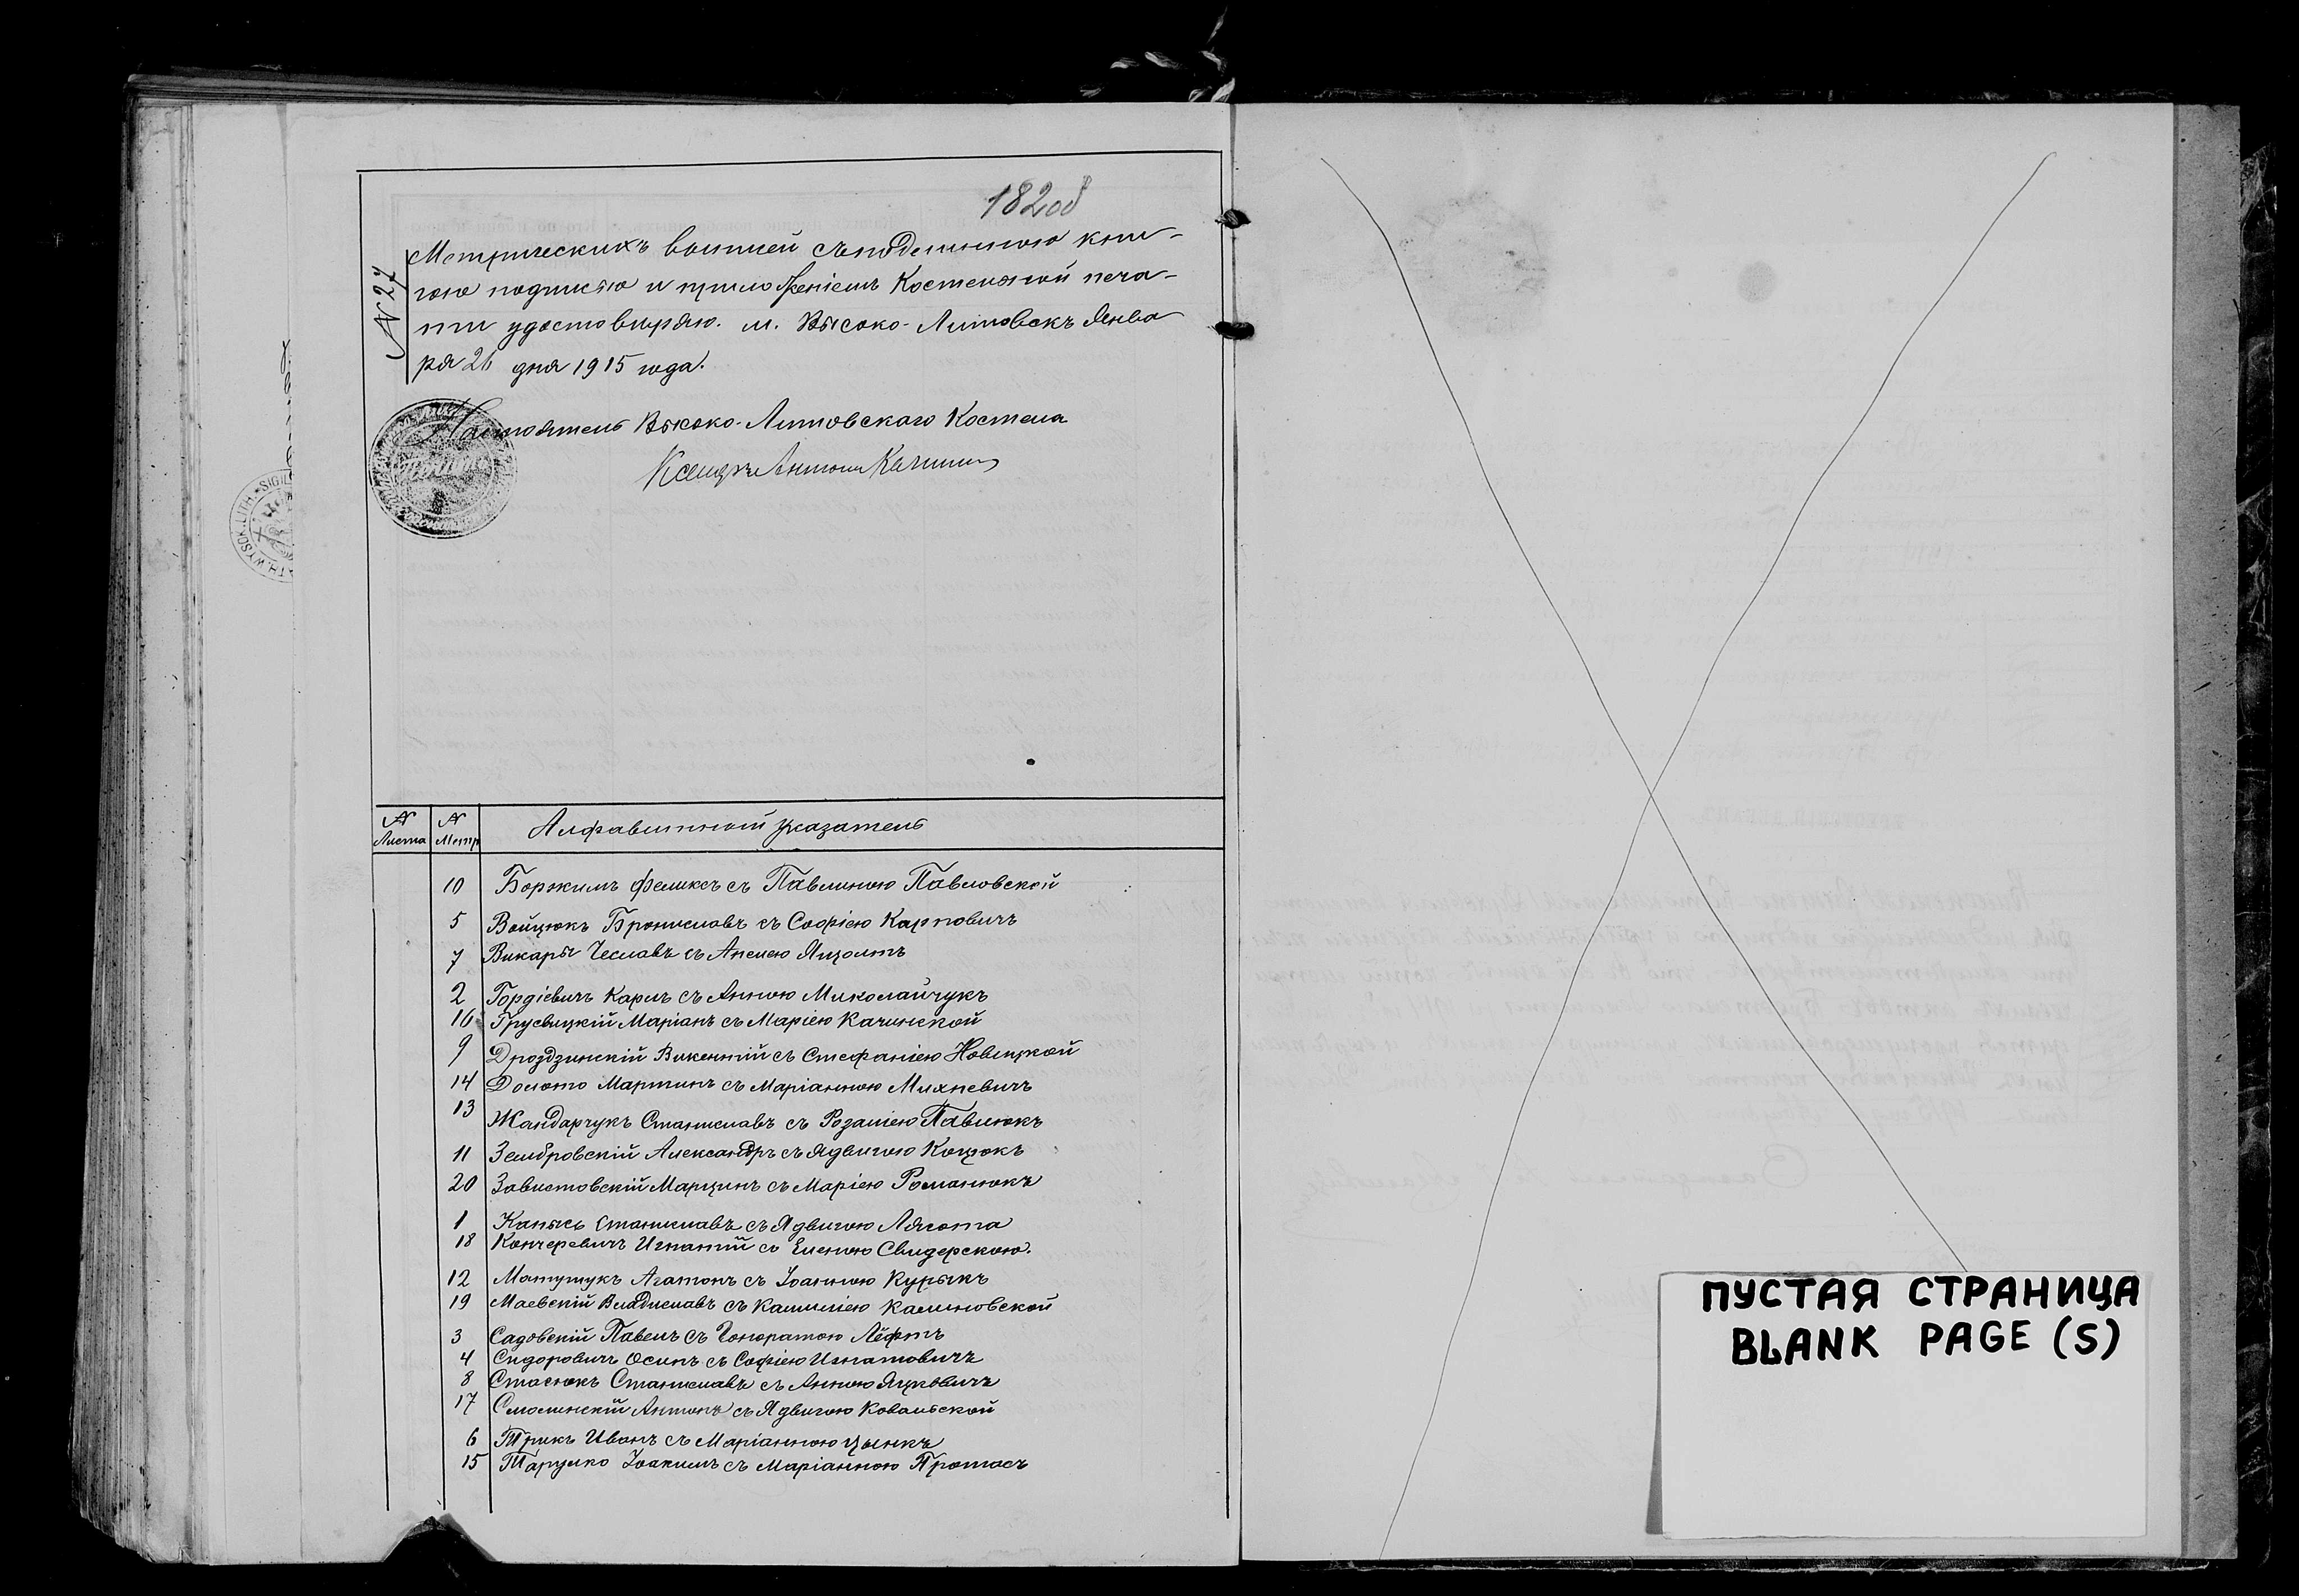 182об
№ 27
Метрическихъ выписей съ подлинною кни-
гою подписью и приложеніемъ Костельной печа-
ти удостовѣряю. м. Высоко-Литовскъ Янва
ря 26 дня 1915 года.
Настоятель Высоко-Литовскаго Костела
Ксендзъ Антоній
WYSOK. LITH. SIGIL
№ Листа № Метр Алфавитный указатель
10 Боржимъ Феликсъ съ Павлиною Павловской
5 Войцюкъ Брониславъ съ Софіею Карповичъ
7 Викары Чеславъ съ Анелею
2 Гордіевичъ Карлъ съ Анною Миколайчукъ
16 Грусвицкій Маріанъ съ Маріею Качинской
9 Дроздзинскій Викентій съ Стефаніею Новицкой
14 Долото Мартинъ съ Маріанною Михневичъ
13 Жандарчукъ Станиславъ съ Розаліею Павлюкъ
11 Зембровскій Александръ съ Ядвигою Коцюкъ
20 Завистовскій Марцинъ съ Маріею Романюкъ
1 Капысь Станиславъ съ Ядвигою Лягота
18 Кончеревичъ Игнатій съ Еленою Свидерскою.
12 Матущукъ Агатонъ съ Іоанною Курыкъ
19 Маевскій Владиславъ съ Камиліею Калиновской
3 Садовскій Павелъ съ Гоноратою Лёфтъ
4 Сидоровичъ Осипъ съ Софіею Игнатовичъ
8 Стасюкъ Станиславъ съ Анною Яцкевичъ
17 Смолинскій Антонъ съ Ядвигою Ковальской
6 Трикъ Иванъ съ Маріанною Цынкъ
15 Тарушко Іоакимъ съ Маріанною Протасъ
ПУСТАЯ СТРАНИЦА
BLANK PAGE (S)